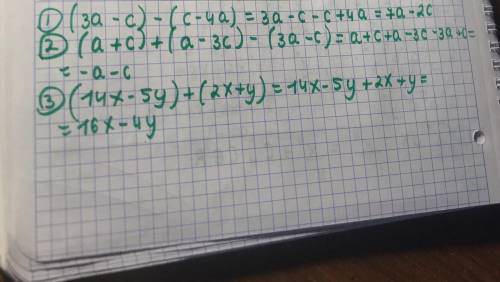 ① (3a - c) - (c - 4a) = 3a - c - c + 4a = 7a - 2c
② (a + c) + (a - 3c) - (3a - c) = a + c + a - 3c - 3a + c =
= -a - c
③ (14x - 5y) + (2x + y) = 14x - 5y + 2x + y =
= 16x - 4y